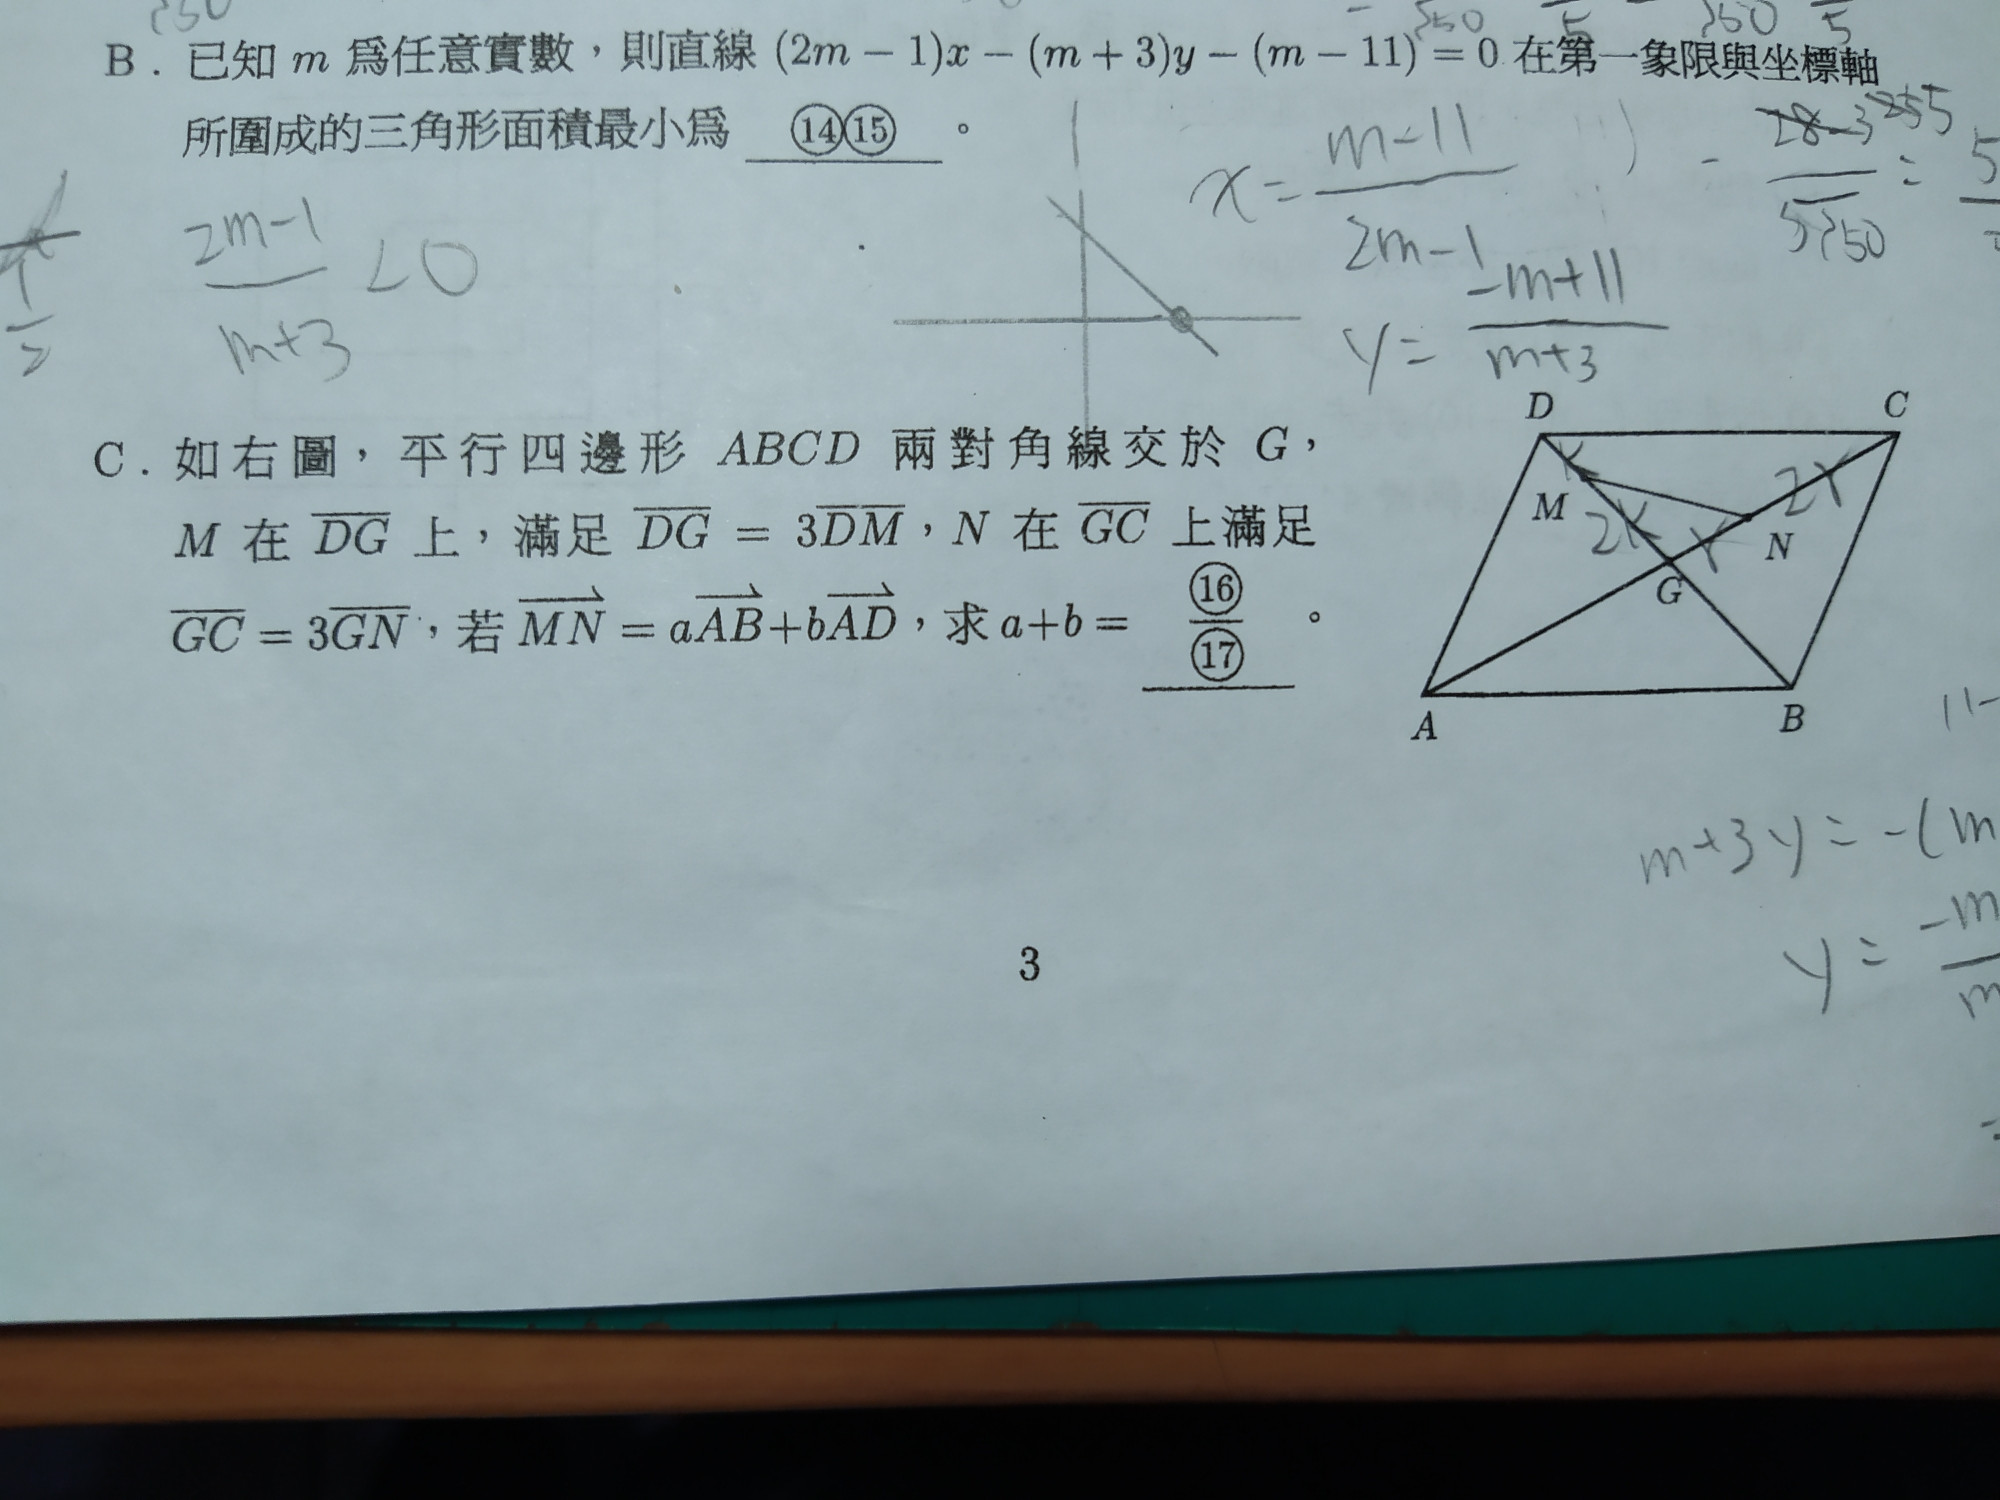 B. 已知 m 爲任意實數，則直線 (2m − 1)x − (m + 3)y − (m − 11) = 0 在第一象限與坐標軸
所圍成的三角形面積最小爲 ⑭⑮ 。
x = m-11 / 2m-1
2m-1 / m+3 < 0
y = -m+11 / m+3
C. 如右圖，平行四邊形 ABCD 兩對角線交於 G，
M 在 DG 上，滿足 DG = 3DM，N 在 GC 上滿足
GC = 3GN，若 MN = aAB+bAD，求 a+b = ⑯/⑰ 。
D C
M N
G
A B
m+3 y = -(m
y = -m
m
3